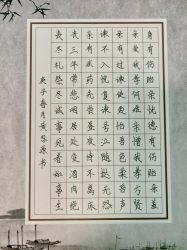 身有伤贻亲忧德有伤贻亲羞
亲爱我孝何难亲憎我孝方贤
亲有过谏使更怡吾色柔吾声
谏不入悦复谏号泣随挞无怨
亲有疾药先尝昼夜侍不离床
丧三年常悲咽居处变酒肉绝
丧尽礼祭尽诚事死者如事生
庚子春月黄源书